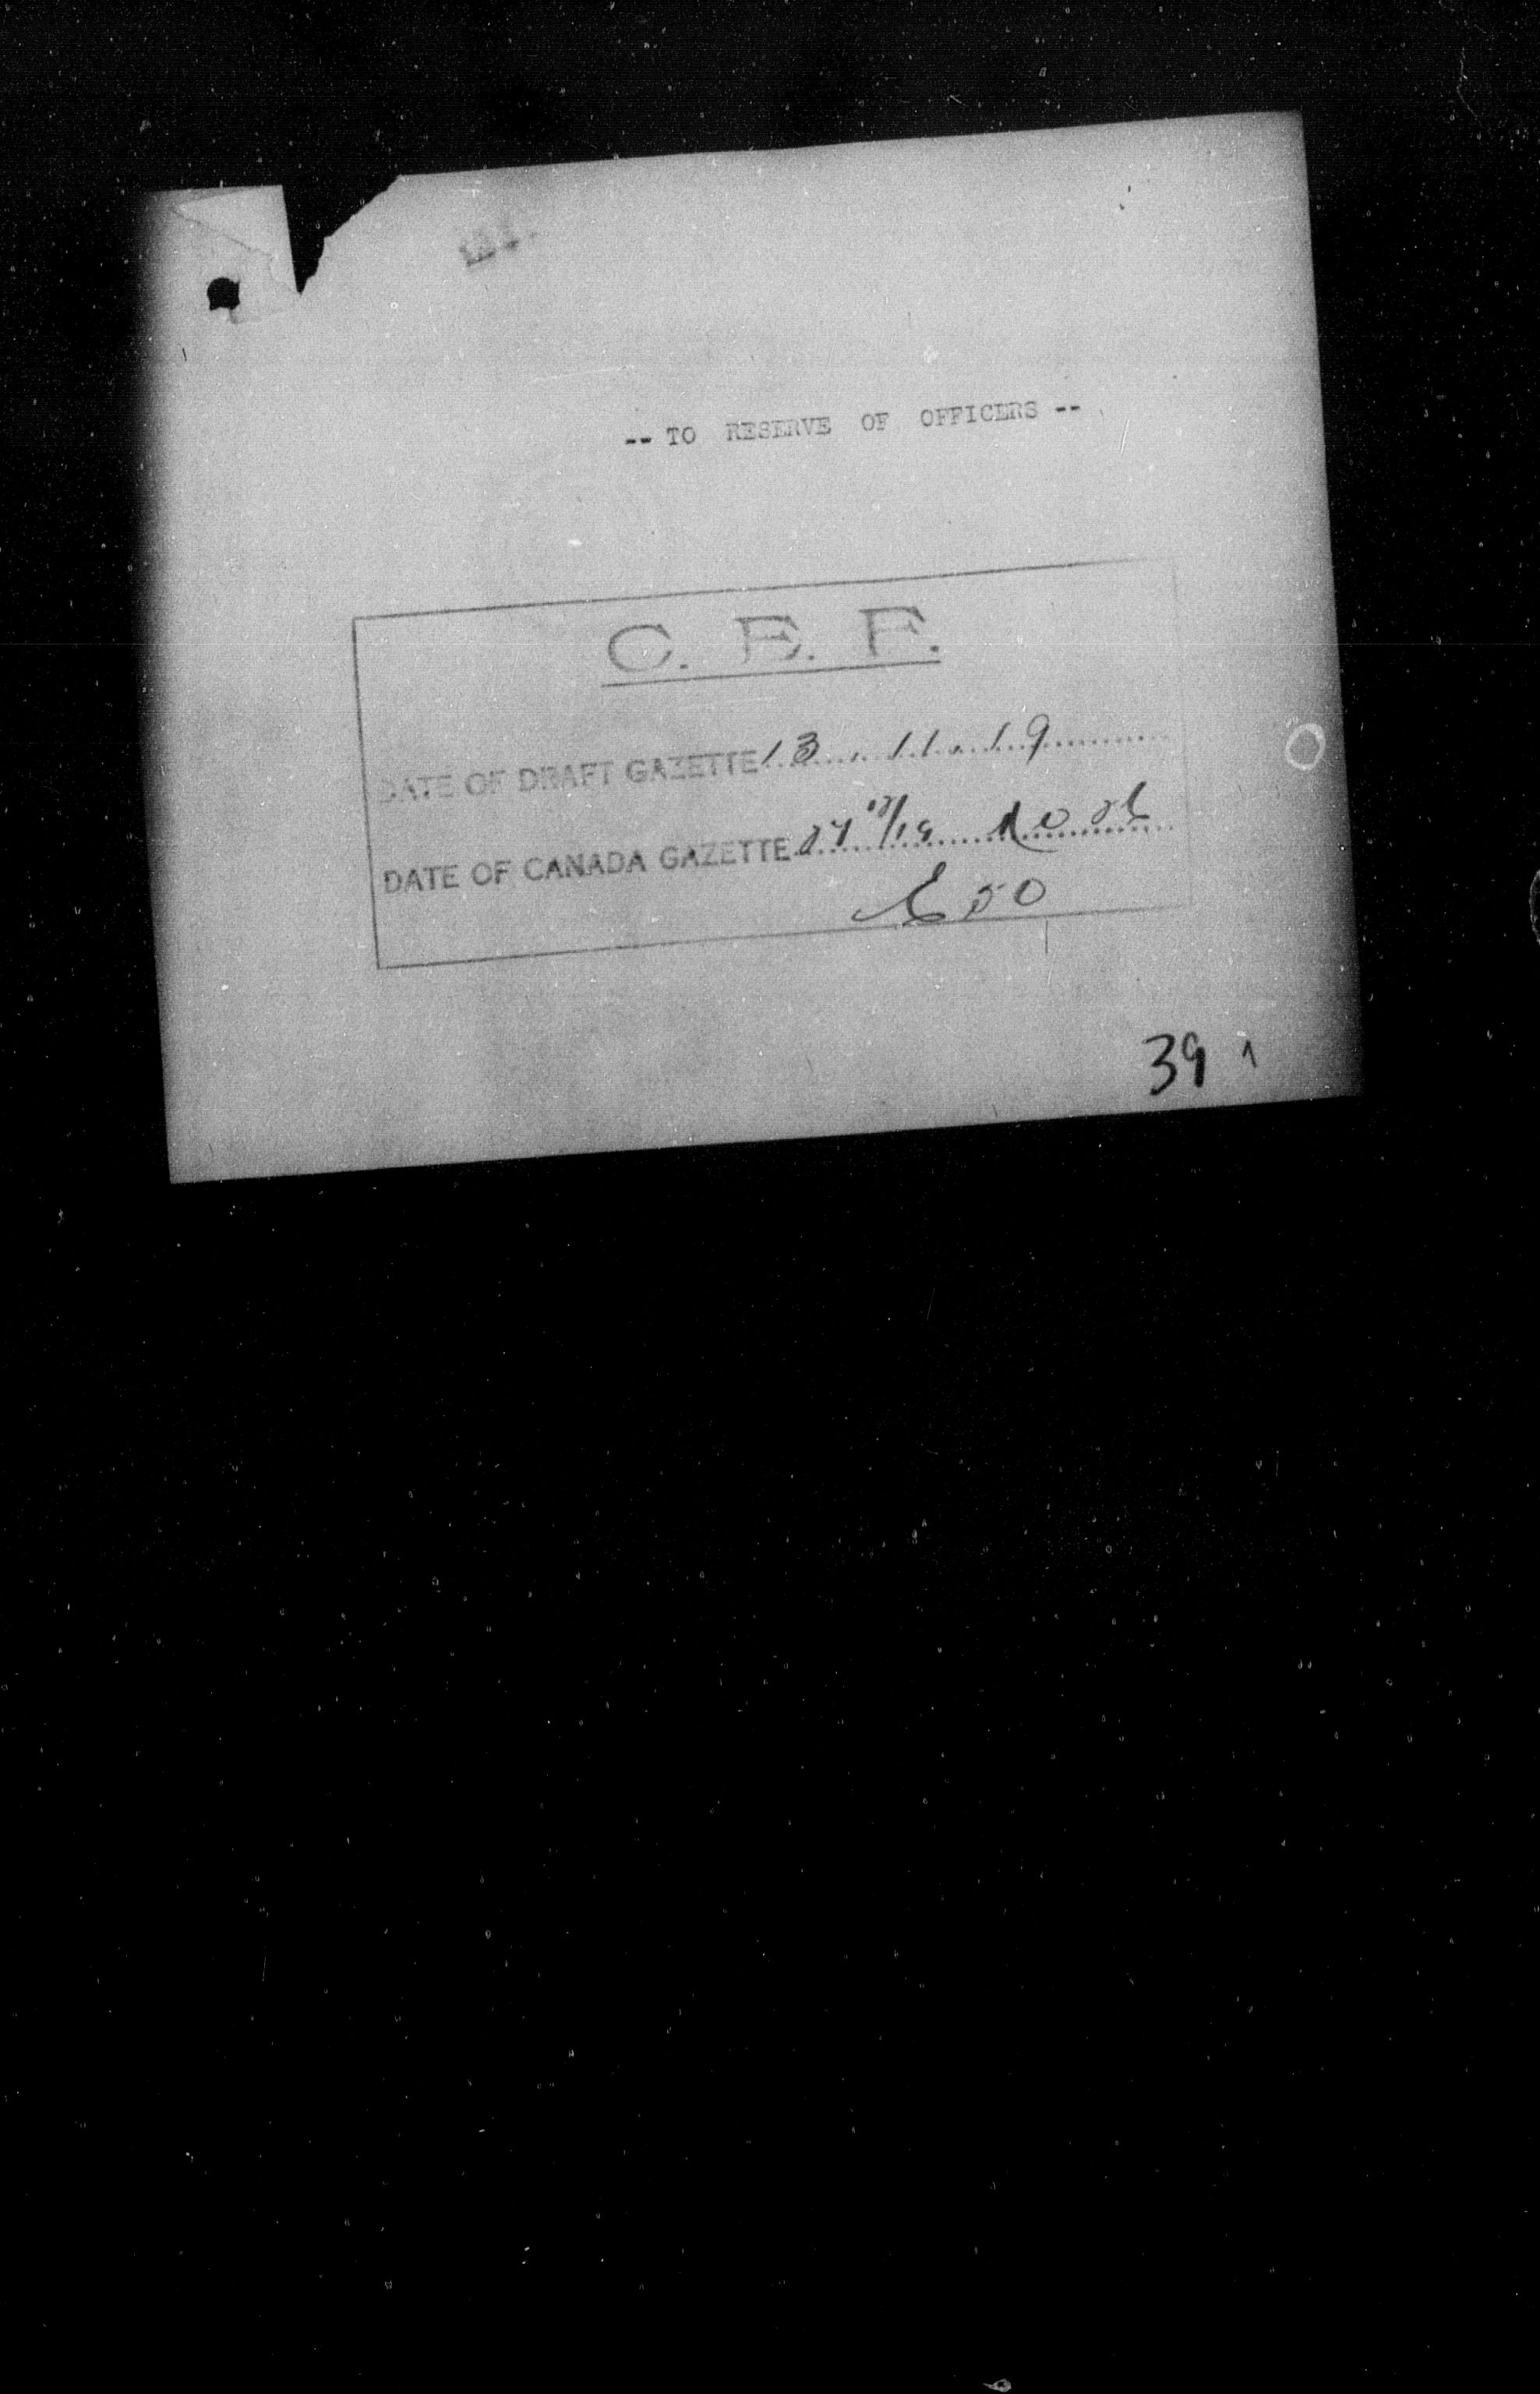 -- TO RESERVE OF OFFICERS --
C. E. F.
DATE OF DRAFT GAZETTE 13 . 11 . 19
DATE OF CANADA GAZETTE 27 12/19 No 26
E 50
39